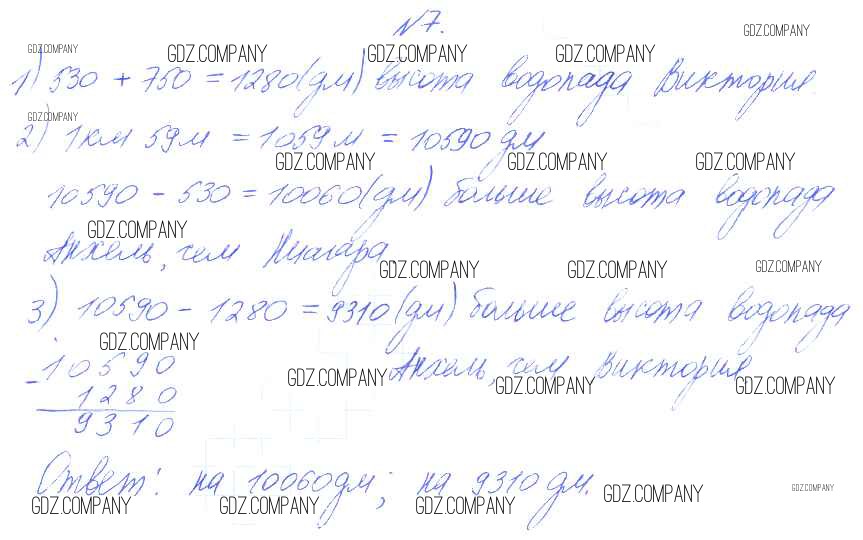 №7.
GDZ.COMPANY
GDZ.COMPANY GDZ.COMPANY GDZ.COMPANY GDZ.COMPANY
1) 530 + 750 = 1280 (дм) высота водопада Виктория.
GDZ.COMPANY
2) 1 км 59 м = 1059 м = 10590 дм
GDZ.COMPANY GDZ.COMPANY GDZ.COMPANY
10590 - 530 = 10060 (дм) больше высота водопада
GDZ.COMPANY
Анхель, чем Ниагара.
GDZ.COMPANY GDZ.COMPANY GDZ.COMPANY
3) 10590 - 1280 = 9310 (дм) больше высота водопада
GDZ.COMPANY
Анхель, чем Виктория
GDZ.COMPANY GDZ.COMPANY GDZ.COMPANY
- 10590
1280
9310
Ответ: на 10060 дм; на 9310 дм.
GDZ.COMPANY GDZ.COMPANY GDZ.COMPANY GDZ.COMPANY GDZ.COMPANY